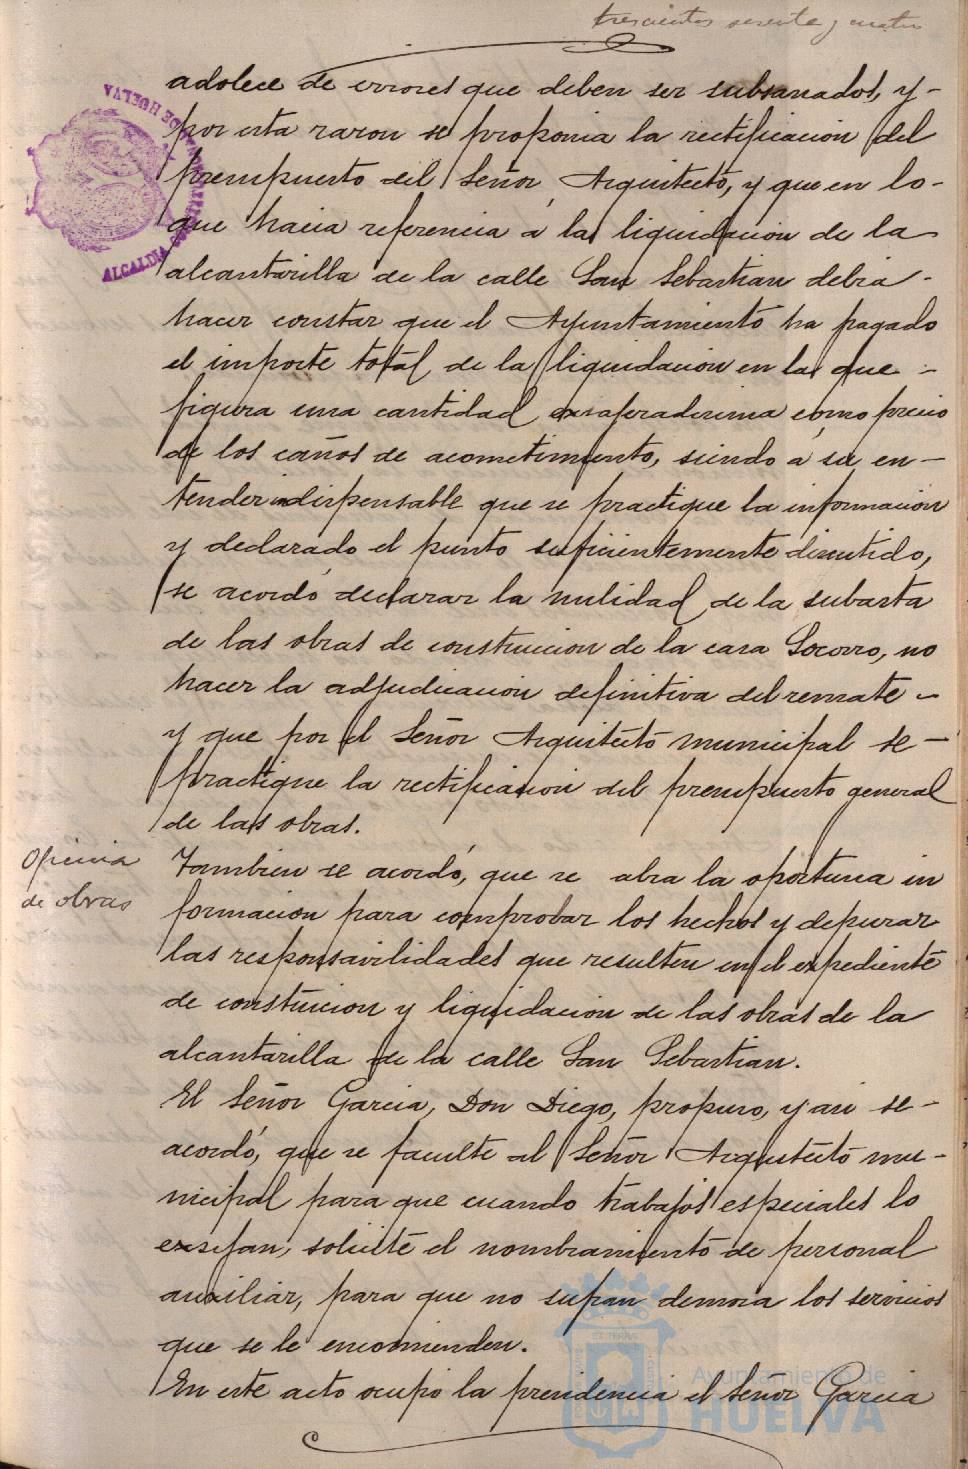 trescientos sesenta y cuatro
adolece de errores que deben ser subsanados, y-
por esta razon se proponia la rectificacion del
presupuesto del Señor Arquitecto, y que en lo-
que hacia referencia á la liquidacion de la
alcantarilla de la calle San Sebastian debia-
hacer constar que el Ayuntamiento ha pagado
el importe total de la liquidacion en la que-
figura una cantidad exsageradisima como precio
de los caños de acometimiento, siendo á su en-
tender indispensable que se practique la informacion
y declarado el punto suficientemente discutido,
se acordó declarar la nulidad de la subasta
de las obras de construicion de la casa Socorro, no
hacer la adjudicacion definitiva del remate-
y que por el Señor Arquitecto municipal se-
practique la rectificacion del presupuesto general
de las obras.
Oficina
de obras
Tambien se acordó, que se abra la oportuna in
formacion para comprobar los hechos y depurar
las responsavilidades que resulten en el expediente
de constuicion y liquidacion de las obras de la
alcantarilla de la calle San Sebastian.
El Señor Garcia, Don Diego, propuso, y asi se-
acordó, que se faculte al Señor Arquitecto mu-
nicipal para que cuando trabajos especiales lo
exsijan, solicite el nombramiento de personal
auxiliar, para que no sufran demora los servicios
que se le encomienden.
En este acto ocupó la presidencia el Señor Garcia
ALCALDIA CONSTITUCIONAL DE HUELVA
Ayuntamiento de
HUELVA